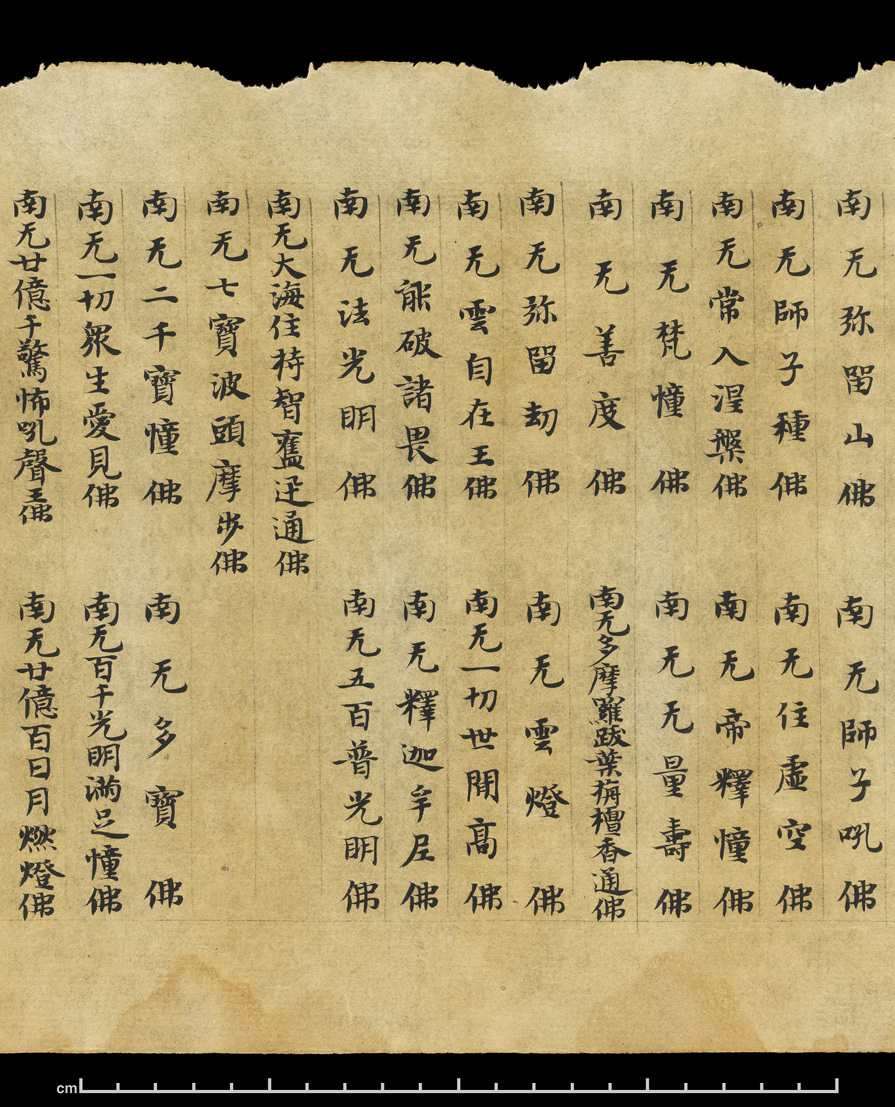 南无弥留山佛　南无師子吼佛
南无師子種佛　南无住虛空佛
南无常入涅槃佛　南无帝釋幢佛
南无梵幢佛　南无无量壽佛
南无善度佛　南无多摩羅跋葉栴檀香通佛
南无弥留劫佛　南无雲燈佛
南无雲自在王佛　南无一切世間高佛
南无能破諸畏佛　南无釋迦牟尼佛
南无法光明佛　南无五百普光明佛
南无大海住持智奮迅通佛
南无七寶波頭摩步佛
南无二千寶幢佛　南无多寶佛
南无一切衆生愛見佛　南无百千光明滿足幢佛
南无廿億千驚怖吼聲王佛　南无廿億百日月燃燈佛
cm